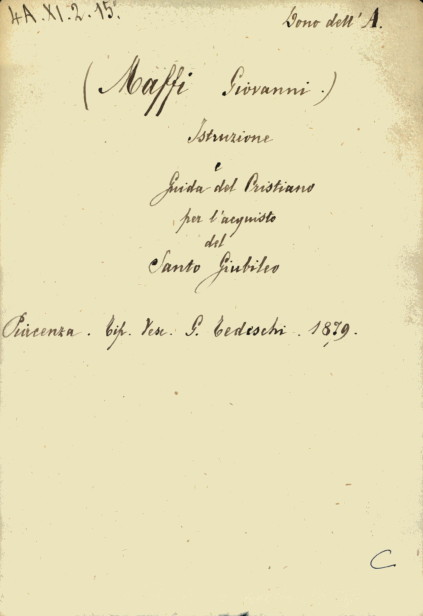 4A.XI.2.15.
Dono dell'A.
(Maffi Giovanni.)
Istruzione
e
Guida del Cristiano
per l'acquisto
del
Santo Giubileo
Piacenza. Tip. Vesc. G. Tedeschi. 1879.
C